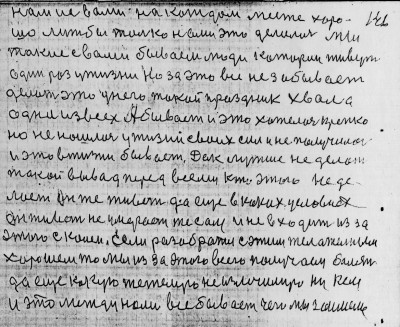 нами с вами на каждом месте хоро-
шо лишь бы только нами это делалось мы
такие с вами бываем люди которые живут
один раз в жизни Но за это все не забывает
делат это у него такой праздник хвала
одна из всех А бывает и это хотелося крепко
но не нашлось у жизни своих сил и не получилось
и это в жизни бывает, Дак лучше не делать
такой вывод перед всеми кто этого не де-
лает Он же живет да еще в каких условиях
Он живет не умирает те саму и не входит из за
этого с коли. Если разобраться с этим желательным
хорошем то мы из за этого всего получаем болезнь
да еще какую не излечимую ни кем
и это между нами все бывает чего мы